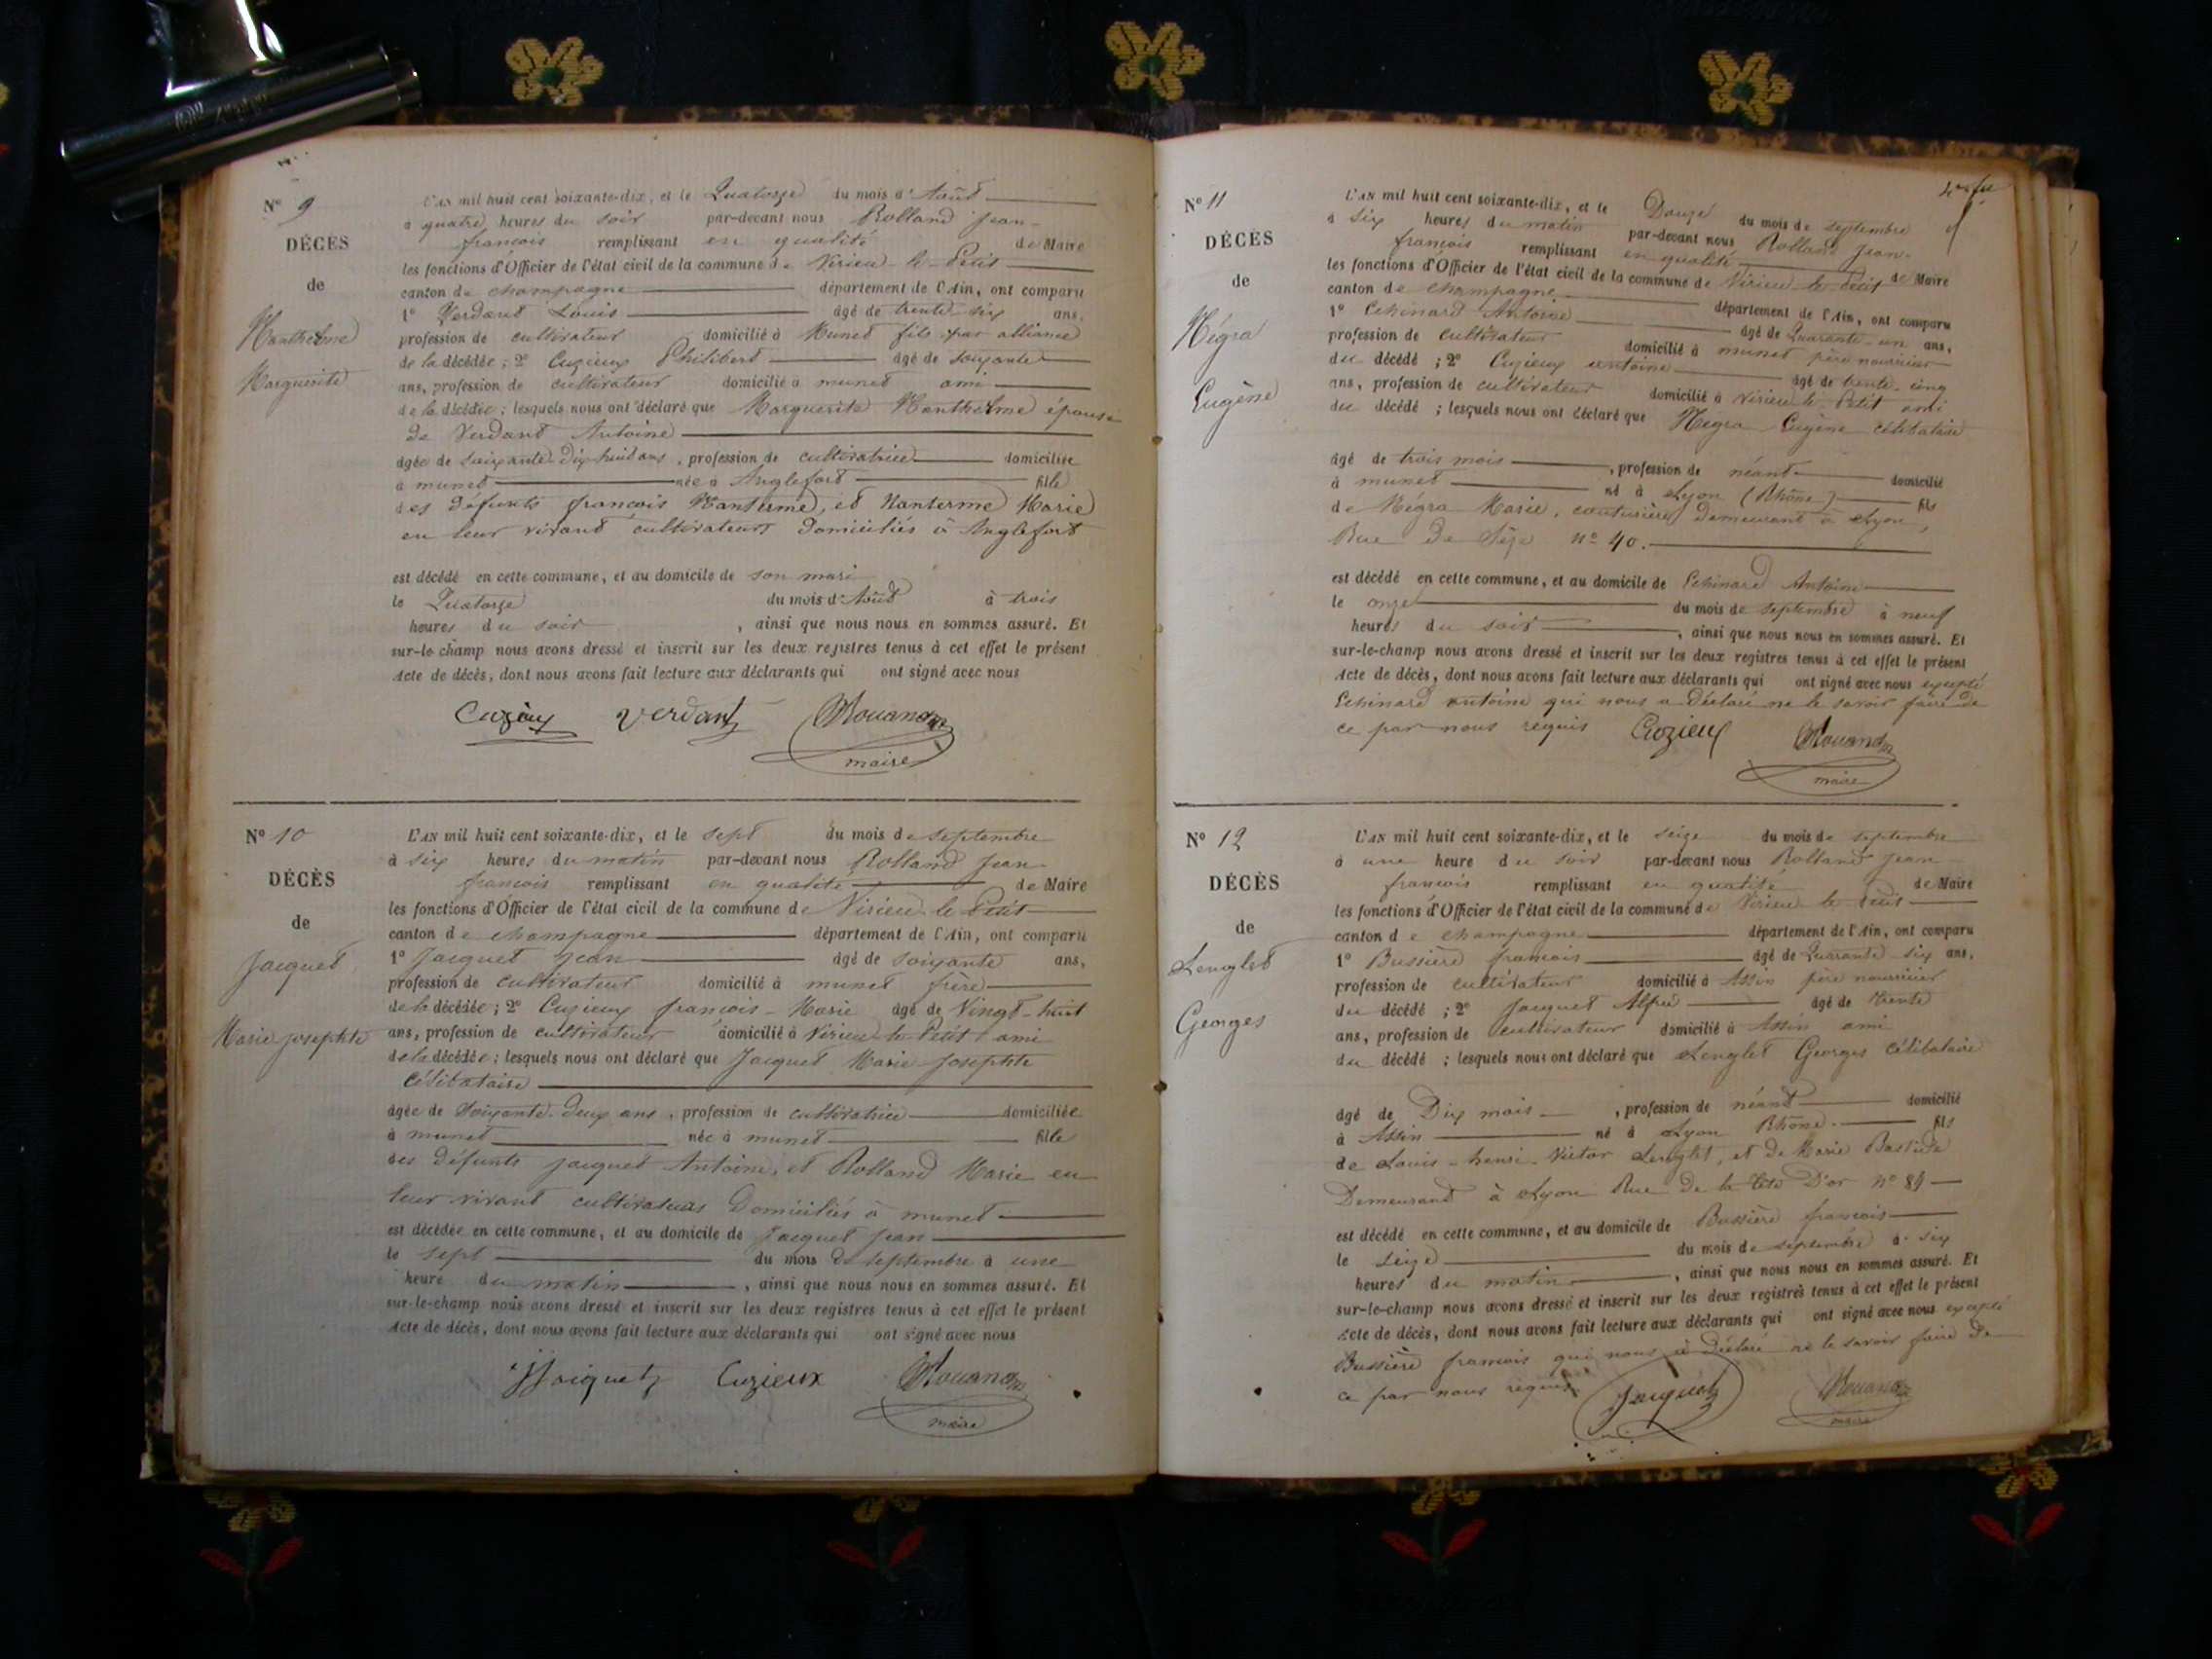 N° 9
DÉCÈS
de
Manthelme
Marguerite
L'AN mil huit cent soixante-dix, et le Quatorze du mois d'Août
à quatre heures du soir par-devant nous Rolland Jean
françois remplissant en qualité de Maire
les fonctions d'Officier de l'état civil de la commune de Virieu-le-Petit
canton de champagne département de l'Ain, ont comparu
1° Verdant Louis âgé de trente-six ans,
profession de cultivateur domicilié à Munet fils par alliance
de la décédée ; 2° Cuzieux Philibert âgé de soixante
ans, profession de cultivateur domicilié à munet ami
de la décédée ; lesquels nous ont déclaré que Marguerite Manthelme épouse
de Verdant Antoine
âgée de soixante-dix-huit ans, profession de cultivatrice domiciliée
à munet née à Anglefort fille
des défunts françois Manterme, et Nanterme Marie
en leur vivant cultivateurs Domiciliés à Anglefort
est décédé en cette commune, et au domicile de son mari
le Quatorze du mois d'Août à trois
heures du soir , ainsi que nous nous en sommes assuré. Et
sur-le-champ nous avons dressé et inscrit sur les deux registres tenus à cet effet le présent
Acte de décès, dont nous avons fait lecture aux déclarants qui ont signé avec nous
Cuzieux Verdant
maire
N° 10
DÉCÈS
de
Jacquet
Marie Josephte
L'AN mil huit cent soixante-dix, et le sept du mois de septembre
à six heures du matin par-devant nous Rolland Jean
françois remplissant en qualité de Maire
les fonctions d'Officier de l'état civil de la commune de Virieu-le-Petit
canton de champagne département de l'Ain, ont comparu
1° Jacquet Jean âgé de soixante ans,
profession de cultivateur domicilié à munet frère
de la décédée ; 2° Cuzieux françois-Marie âgé de Vingt-huit
ans, profession de cultivateur domicilié à Virieu-le-Petit ami
de la décédée ; lesquels nous ont déclaré que Jacquet Marie Josephte
célibataire
âgée de Soixante-deux ans, profession de cultivatrice domiciliée
à munet née à munet fille
des défunts Jacquet Antoine, et Rolland Marie en
leur vivant cultivateurs Domiciliés à munet
est décédée en cette commune, et au domicile de Jacquet Jean
le sept du mois de septembre à une
heure du matin , ainsi que nous nous en sommes assuré. Et
sur-le-champ nous avons dressé et inscrit sur les deux registres tenus à cet effet le présent
Acte de décès, dont nous avons fait lecture aux déclarants qui ont signé avec nous
Jacquet Cuzieux
maire
N° 11
DÉCÈS
de
Négra
Eugène
L'AN mil huit cent soixante-dix, et le Douze du mois de septembre
à six heures du matin par-devant nous Rolland Jean
françois remplissant en qualité de Maire
les fonctions d'Officier de l'état civil de la commune de Virieu-le-Petit
canton de champagne département de l'Ain, ont comparu
1° Echinard Antoine âgé de Quarante-un ans,
profession de cultivateur domicilié à munet père nourricier
du décédé ; 2° Cuzieux antoine âgé de trente-cinq
ans, profession de cultivateur domicilié à Virieu-le-Petit ami
du décédé ; lesquels nous ont déclaré que Négra Eugène célibataire
âgé de trois mois , profession de néant domicilié
à munet né à Lyon (Rhône) fils
de Négra Marie, couturière Demeurant à Lyon,
Rue De Sèze n° 40.
est décédé en cette commune, et au domicile de Echinard Antoine
le onze du mois de septembre à neuf
heures du soir , ainsi que nous nous en sommes assuré. Et
sur-le-champ nous avons dressé et inscrit sur les deux registres tenus à cet effet le présent
Acte de décès, dont nous avons fait lecture aux déclarants qui ont signé avec nous excepté
Echinard antoine qui nous a Déclaré ne le savoir faire de
ce par nous requis Cuzieux
maire
N° 12
DÉCÈS
de
Lenglet
Georges
L'AN mil huit cent soixante-dix, et le seize du mois de septembre
à une heure du soir par-devant nous Rolland Jean
françois remplissant en qualité de Maire
les fonctions d'Officier de l'état civil de la commune de Virieu-le-Petit
canton de champagne département de l'Ain, ont comparu
1° Bussière françois âgé de Quarante-six ans,
profession de cultivateur domicilié à Assin père nourricier
du décédé ; 2° Jacquet Alfred âgé de trente
ans, profession de cultivateur domicilié à Assin ami
du décédé ; lesquels nous ont déclaré que Lenglet Georges célibataire
âgé de Dix mois , profession de néant domicilié
à Assin né à Lyon Rhône fils
de Louis-henri-Victor Lenglet, et de Marie Bastide
Demeurant à Lyon Rue De la Tête D'or n° 84
est décédé en cette commune, et au domicile de Bussière françois
le seize du mois de septembre à six
heures du matin , ainsi que nous nous en sommes assuré. Et
sur-le-champ nous avons dressé et inscrit sur les deux registres tenus à cet effet le présent
Acte de décès, dont nous avons fait lecture aux déclarants qui ont signé avec nous excepté
Bussière françois qui nous a Déclaré ne le savoir faire De
ce par nous requis Jacquet
maire